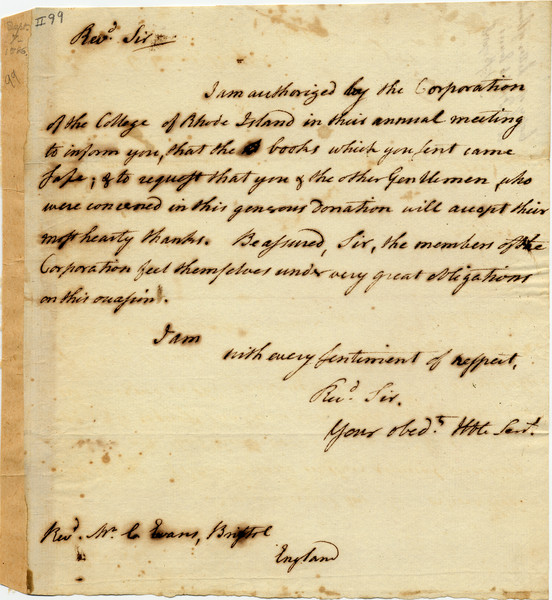 II 99
99
Rev.d Sir
I am authorized by the Corporation
of the College of Rhode Island in their annual meeting
to inform you, that the books which you sent came
safe; & to request that you & the other Gentlemen who
were concerned in this generous Donation will accept their
most hearty thanks. Be assured, Sir, the members of the
Corporation feel themselves under very great obligations
on this occasion.
I am
with every sentiment of respect,
Rev.d Sir.
Your obed.t Hble Serv.t
Rev.d Mr. C. Evans, Bristol
England